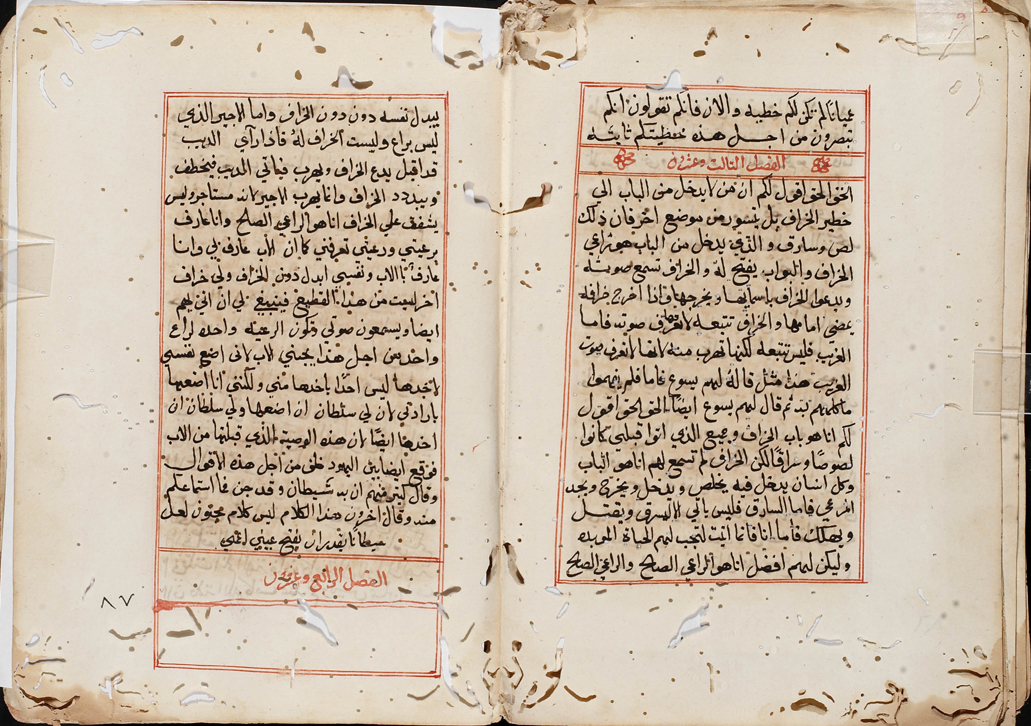 عميانا لم تكن لكم خطيه والان فانكم تقولون انكم
تبصرون من اجل هذه خطيتكم ثابته
الفصل الثالث وعشرون
الحق الحق اقول لكم ان من لا يدخل من الباب الي
حظير الخراف بل يتسور من موضع اخر فان ذلك
لص وسارق والذي يدخل من الباب هو راعي
الخراف والبواب يفتح له والخراف تسمع صوته
ويدعوا الخراف باسمايها ويخرجها واذا اخرج خرافه
يمضي امامها والخراف تتبعه لانها تعرف صوته فاما
الغريب فليس تتبعه لكنها تهرب منه لانها لا تعرف صوت
الغريب هذا مثل قاله لهم يسوع فاما فلم يفهموا
ما كلمهم به ثم قال لهم يسوع ايضا الحق الحق اقول
لكم انا هو باب الخراف وجميع الذي اتوا قبلي كانوا
لصوصا وسراقا لكن الخراف لم تسمع لهم انا هو الباب
وكل انسان يدخل فيه يخلص ويدخل ويخرج ويجد
المرعي فاما السارق فليس ياتي الا ليسرق ويقتل
ويهلك فاما انا فانما اتيت لتجب لهم الحياة المويده
وليكن لهم افضل انا هو الراعي الصالح والراعي الصالح
يبدل نفسه دون دون الخراف واما الاجير الذي
ليس براع وليست الخراف له فاذا راي الديب
قد اقبل يدع الخراف ويهرب فياتي الديب فيخطف
ويبدد الخراف وانما يهرب الاجير لانه مستاجر وليس
يشفق علي الخراف انا هو الراعي الصالح وانا عارف
برعيتي ورعيتي تعرفني كما ان الاب عارف بي وانا
عارف بالاب ونفسي ابدل دون الخراف ولي خراف
اخر ليست من هذا القطيع فينبغي لي ان اتي بهم
ايضا ويسمعون صوتي وتكون الرعيه واحده لراع
واحد من اجل هذا يحبني الاب لاني اضع نفسي
لاخدها ليس احدا ياخدها مني ولكنني انا اضعها
بارادتي لان لي سلطان ان اضعها ولي سلطان ان
اخدها ايضا لان هذه الوصية الذي قبلتها من الاب
فوقع ايضا بين اليهود خلق من اجل هذه الاقوال
وقال كتير منهم ان به شيطان وقد جن فما استماعكم
منه وقال اخرون هذا الكلام ليس كلام مجنون لعل
شيطانا يقدر ان يفتح عيني اعمي
الفصل الرابع وعشرون
٨٧